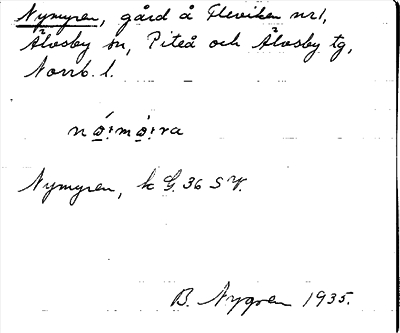 Nymyren, gård å Fleviken nr 1,
Älvsby sn, Piteå och Älvsby tg,
Norrb. l.
nǫ́:mǫ̀:ra
Nymyren, k G. 36 S V.
B. Nygren 1935.